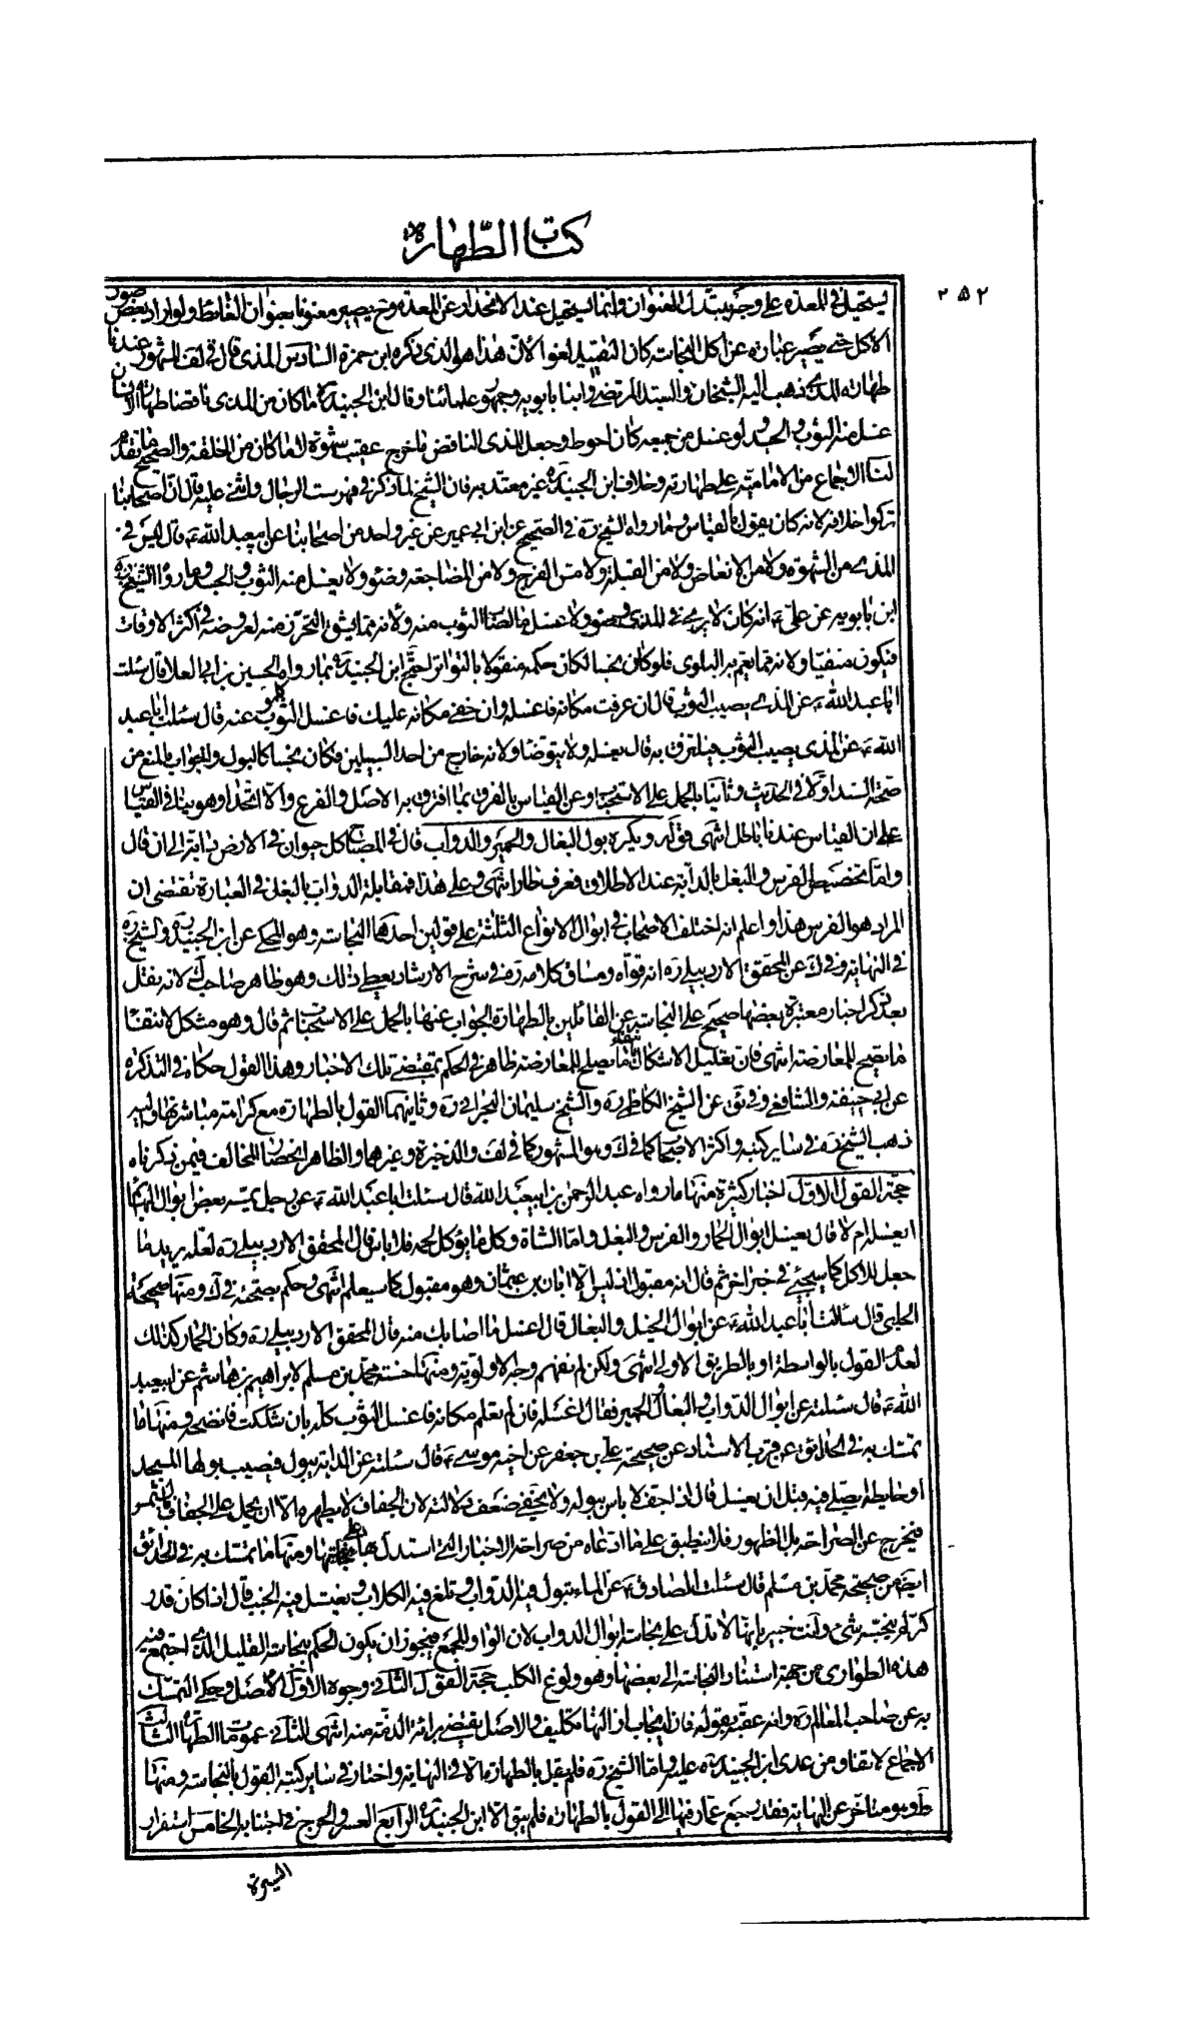 كتاب الطّهارة
۲۵۲
يستحيل في المعدة على وجه يتبدل العنوان وانما يستحيل عند الانحدار عن المعدة وح يصير معنونا بعنوان الغائط ولو اراد بعض صور
الاكل حتى يصير عبارة عن اكل النجاسة كان التقييد لغوا لان هذا هو الذي ذكره ابن حمزة السادس المذي قال في لف المشهور عندنا
طهارة المذي ذهب اليه الشيخان والسيد المرتضى وابنا بابويه وجمهور علمائنا وقال ابن الجنيد ره ما كان من المذي ناقضا طهارة الانسان
غسل منه الثوب والجسد ولو غسل من جميعه كان احوط وجعل المذي الناقض ما خرج عقيب شهوة لا ما كان من الخلقة والصحيح ما تقدم
لنا الاجماع من الامامية على طهارته وخلاف ابن الجنيد ره غير معتد به فان الشيخ لما ذكره في فهرست الرجال واثنى عليه قال ان اصحابنا
تركوا خلافه لانه كان يقول بالقياس وما رواه الشيخ ره في الصحيح عن ابن ابي عمير عن غير واحد من اصحابنا عن ابي عبد الله ع قال ليس في
المذي من الشهوة ولا من الانعاض ولا من القبلة ولا من مس الفرج ولا من المضاجعة وضوء ولا يغسل منه الثوب والجسد وما رواه الشيخ
ابن بابويه عن علي ع انه كان لا يرى في المذي وضوء ولا غسل ما اصاب الثوب منه ولانه مما يشق التحرز منه لعروضه في اكثر الاوقات
فيكون منفيا ولانه مما يعم به البلوى فلو كان نجسا لكان حكمه منقولا بالتواتر احتج ابن الجنيد ره بما رواه الحسين بن ابي العلا قال سئلت
ابا عبد الله ع عن المذي يصيب الثوب قال ان عرفت مكانه فاغسله وان خفى مكانه عليك فاغسل الثوب كله وعنه قال سئلت ابا عبد
الله ع عن المذي يصيب الثوب فيلتزق به قال يغسله ولا يتوضا ولانه خارج من احد السبيلين فكان نجسا كالبول والجواب بالمنع من
صحة السند اولا في الحديث وثانيا بالحمل على الاستحباب وعن القياس بالفرق بما افترق به الاصل والفرع والا اتحدا وهو ينافي القياس
على ان القياس عندنا باطل انتهى قوله ويكره بول البغال والحمير والدواب قال في المصباح كل حيوان في الارض دابة الى ان قال
واما تخصيص الفرس والبغل بالدابة عند الاطلاق فعرف طار انتهى وعلى هذا فمقابلة الدواب بالبغل في العبارة تقتضي ان
المراد هو الفرس هذا واعلم انه اختلف الاصحاب في ابوال الانواع الثلثة على قولين احدهما النجاسة وهو المحكي عن ابن الجنيد ره والشيخ ره
في النهاية وفي ك عن المحقق الاردبيلي ره انه قواه ومساق كلامه ره في شرح الارشاد يعطي ذلك وهو ظاهر صاحب ك لانه نقل
بعد ذكر اخبار معتبرة بعضها صحيح على النجاسة عن القائلين بالطهارة الجواب عنها بالحمل على الاستحباب ثم قال وهو مشكل لانتفاء
ما يصح للمعارضة انتهى فان تعليل الاشكال بانتفاء ما يصلح للمعارضة ظاهر في الحكم بمقتضى تلك الاخبار وهذا القول حكاه في التذكرة
عن ابي حنيفة والشافعي وفي ق عن الشيخ الكاظمي ره والشيخ سليمان البحراني ره وثانيهما القول بالطهارة مع كراهة مباشرتها واليه
ذهب الشيخ ره في ساير كتبه واكثر الاصحاب كما في ك وهو المشهور كما في لف والذخيرة وغيرهما والظاهر انحصار المخالف فيمن ذكرناه
حجة القول الاول اخبار كثيرة منها ما رواه عبد الرحمن بن ابي عبد الله قال سئلت ابا عبد الله ع عن رجل يمسه بعض ابوال البهائم
ايغسله ام لا قال يغسل ابوال الحمار والفرس والبغل واما الشاة وكل ما يؤكل لحمه فلا باس قال المحقق الاردبيلي ره لعله يريد ما
جعل للاكل كما سيجيئ في خبر اخر ثم قال انه مقبول اذ ليس الا ابان بن عثمان وهو مقبول كما سيعلم انتهى وحكم بصحته في ك ومنها صحيحة
الحلبي قال سالت ابا عبد الله ع عن ابوال الخيل والبغال قال اغسل ما اصابك منه قال المحقق الاردبيلي ره وكان الحمار كذلك
لعدم القول بالواسطة او بالطريق الاولى انتهى ولكن لم نفهم وجه الاولوية ومنها حسنة محمد بن مسلم لابراهيم بن هاشم عن ابي عبد
الله ع قال سئلته عن ابوال الدواب والبغال والحمير فقال اغسله فان لم تعلم مكانه فاغسل الثوب كله بان شككت فانضحه ومنها ما
تمسك به في الحدائق عن قرب الاسناد عن صحيحة علي بن جعفر عن اخيه موسى ع قال سئلته عن الدابة تبول فيصيب بولها المسجد
او حايطه ايصلى فيه قبل ان يغسل قال اذا جف فلا باس ببوله ولا يخفى ضعف دلالته لان الجفاف لا يطهره الا ان يحمل على الجفاف بالشمس
فيخرج عن الصراحة بل الظهور فلا ينطبق على ما ادعاه من صراحة الاخبار التي استدل بها على نجاستها ومنها ما تمسك به في الحدائق
ايضا من صحيحة محمد بن مسلم قال سئلت الصادق ع عن الماء تبول فيه الدواب وتلغ فيه الكلاب ويغتسل فيه الجنب قال اذا كان قدر
كر لم ينجسه شيء وانت خبير بانها لا تدل على نجاسة ابوال الدواب لان الواو للجمع فيجوز ان يكون الحكم بنجاسة القليل الذي اجتمع فيه
هذه الطواري من جهة استناد النجاسة الى بعضها وهو ولوغ الكلب حجة القول الثاني وجوه الاول الاصل وحكى التمسك
به عن صاحب المعالم ره وانه عقبه بقوله فان ايجاب ازالتها تكليف والاصل يقتضي برائة الذمة منه انتهى الثاني عمومات الطهارة الثالث
الاجماع لاتفاق من عدى ابن الجنيد ره عليه واما الشيخ ره فلم يقل بالطهارة الا في النهاية واختار في ساير كتبه القول بالنجاسة ومنها
ط وهو متاخر عن النهاية فقد رجع عما رفيها الى القول بالطهارة فلم يبق الا ابن الجنيد ره الرابع العسر والحرج في اجتنابه الخامس استقرار
السيرة